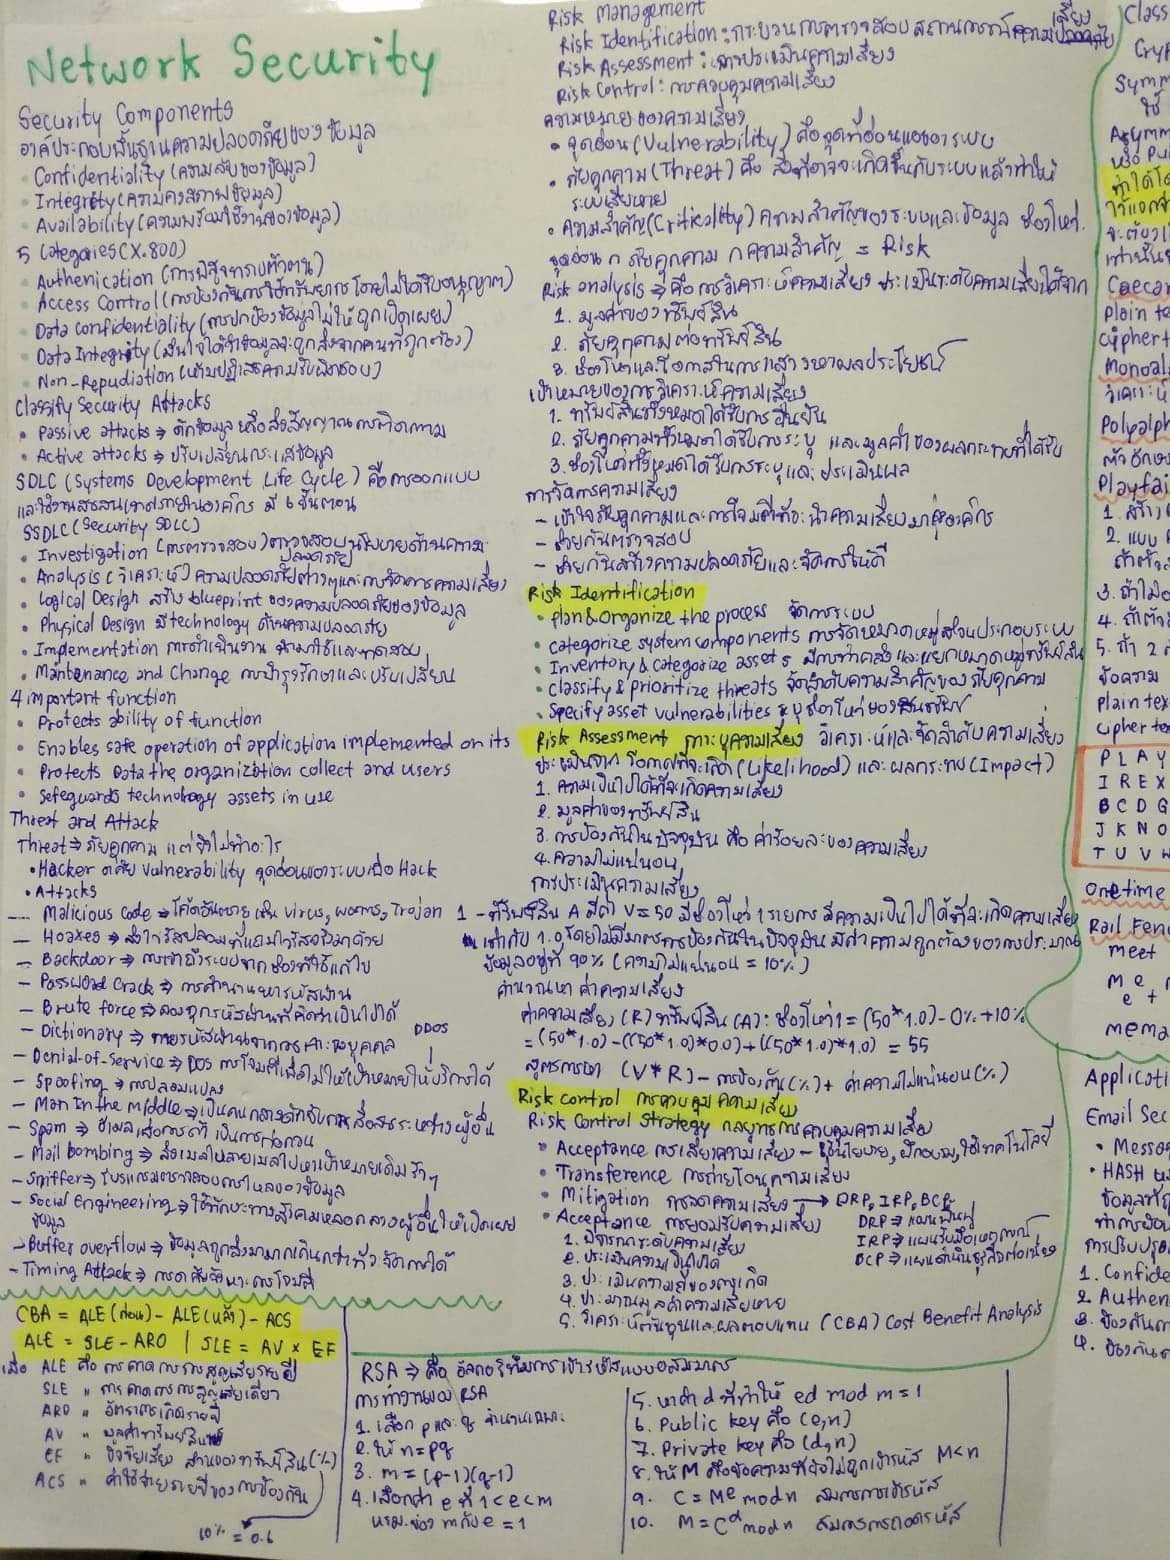 Network Security
Security Components
องค์ประกอบพื้นฐานความปลอดภัยของข้อมูล
- Confidentiality (ความลับของข้อมูล)
- Integrity (ความคงสภาพข้อมูล)
- Availability (ความพร้อมใช้งานของข้อมูล)
5 Categories (X.800)
- Authenication (การพิสูจน์ทราบตัวตน)
- Access Control (การป้องกันการใช้ทรัพยากรโดยไม่ได้รับอนุญาต)
- Data confidentiality (การปกป้องข้อมูลไม่ให้ถูกเปิดเผย)
- Data Integrity (มั่นใจได้ว่าข้อมูลจะถูกส่งจากคนที่ถูกต้อง)
- Non-Repudiation (ห้ามปฏิเสธความรับผิดชอบ)
Classify Security Attacks
• Passive attacks ⇒ ดักข้อมูล หรือส่งสัญญาณการติดตาม
• Active attacks ⇒ ปรับเปลี่ยนกระแสข้อมูล
SDLC (Systems Development Life Cycle) คือการออกแบบ
และใช้งานสารสนเทศภายในองค์กร มี 6 ขั้นตอน
SSDLC (Security SDLC)
• Investigation (การตรวจสอบ) ตรวจสอบนโยบายด้านความปลอดภัย
• Analysis (วิเคราะห์) ความปลอดภัยต่างๆและการจัดการความเสี่ยง
• Logical Design สร้าง blueprint ของความปลอดภัยของข้อมูล
• Physical Design มี technology ด้านความปลอดภัย
• Implementation การดำเนินงาน นำมาใช้และทดสอบ
• Maintenance and Change การบำรุงรักษาและปรับเปลี่ยน
4 important function
• Protects ability of function
• Enables safe operation of application implemented on its
• Protects Data the organization collect and users
• Safeguards technology assets in use
Threat and Attack
Threat ⇒ ภัยคุกคาม แต่ยังไม่ทำอะไร
• Hacker อาศัย vulnerability จุดอ่อนของระบบเพื่อ Hack
• Attacks
- Malicious Code ⇒ โค้ดอันตราย เช่น virus, worms, Trojan
- Hoaxes ⇒ ส่งไวรัสปลอมที่แถมไวรัสจริงมาด้วย
- Backdoor ⇒ การเข้าถึงระบบจากช่องที่ใช้แก้ไข
- Password Crack ⇒ การคำนวนหารหัสผ่าน
- Brute force ⇒ ลองทุกรหัสผ่านที่คิดว่าเป็นไปได้
- Dictionary ⇒ ทายรหัสผ่านจากการเจาะจงบุคคล
DDOS
- Denial-of-Service ⇒ DOS การโจมตีเพื่อไม่ให้เป้าหมายให้บริการได้
- Spoofing ⇒ การปลอมแปลง
- Man In the middle ⇒ เป็นคนกลางดักจับการสื่อสารระหว่างผู้อื่น
- Spam ⇒ อีเมลเพื่อการค้า เป็นการก่อกวน
- Mail bombing ⇒ ส่งเมลหลายเมลไปหาเป้าหมายเดิมรัวๆ
- Sniffer ⇒ โปรแกรมตรวจสอบการไหลของข้อมูล
- Social Engineering ⇒ ใช้ทักษะทางสังคมหลอกลวงผู้อื่นให้เปิดเผย
ข้อมูล
- Buffer overflow ⇒ ข้อมูลถูกส่งมามากเกินกว่าที่จะจัดการได้
- Timing Attack ⇒ การอาศัยจังหวะการโจมตี
CBA = ALE(ก่อน) - ALE(หลัง) - ACS
ALE = SLE - ARO | SLE = AV × EF
เมื่อ ALE คือ การคาดการการสูญเสียรายปี
SLE " การคาดการการสูญเสียเดี่ยว
ARO " อัตราการเกิดรายปี
AV " มูลค่าทรัพย์สิน
EF " ปัจจัยเสี่ยง ส่วนของทรัพย์สิน (%)
ACS " ค่าใช้จ่ายรายปีของการป้องกัน
10% = 0.1
Risk Management
Risk Identification : กระบวนการตรวจสอบสถานการณ์ความเสี่ยง
Risk Assessment : การประเมินความเสี่ยง
Risk Control : การควบคุมความเสี่ยง
ความหมายของความเสี่ยง
• จุดอ่อน (Vulnerability) คือจุดที่อ่อนแอของระบบ
• ภัยคุกคาม (Threat) คือ สิ่งที่อาจจะเกิดขึ้นกับระบบแล้วทำให้
ระบบเสียหาย
• ความสำคัญ (Criticality) ความสำคัญของระบบและข้อมูล ช่องโหว่.
จุดอ่อน ∩ ภัยคุกคาม ∩ ความสำคัญ = Risk
Risk analysis ⇒ คือ การวิเคราะห์ความเสี่ยง ประเมินระดับความเสี่ยงได้จาก
1. มูลค่าของทรัพย์สิน
2. ภัยคุกคามต่อทรัพย์สิน
3. ช่องโหว่และโอกาสในการแสวงหาผลประโยชน์
เป้าหมายของการวิเคราะห์ความเสี่ยง
1. ทรัพย์สินทั้งหมดได้รับการยืนยัน
2. ภัยคุกคามทั้งหมดได้รับการระบุ และมูลค่าของผลกระทบที่ได้รับ
3. ช่องโหว่ทั้งหมดได้รับการระบุและประเมินผล
การจัดการความเสี่ยง
- เข้าใจภัยคุกคามและการโจมตีที่จะนำความเสี่ยงมาสู่องค์กร
- ช่วยกันตรวจสอบ
- ช่วยกันสร้างความปลอดภัยและจัดการให้ดี
Risk Identification
• plan & organize the process จัดการระบบ
• categorize system components การจัดหมวดหมู่ส่วนประกอบระบบ
• Inventory & categorize assets มีการทำคลังและแยกหมวดหมู่ทรัพย์สิน
• Classify & prioritize threats จัดลำดับความสำคัญของภัยคุกคาม
• Specify asset vulnerabilities ระบุช่องโหว่ของสินทรัพย์
Risk Assessment การระบุความเสี่ยง วิเคราะห์และจัดลำดับความเสี่ยง
ประเมินจาก โอกาสที่จะเกิด (Likelihood) และ ผลกระทบ (Impact)
1. ความเป็นไปได้ที่จะเกิดความเสี่ยง
2. มูลค่าของทรัพย์สิน
3. การป้องกันในปัจจุบัน คือ ค่าร้อยละของความเสี่ยง
4. ความไม่แน่นอน
การประเมินความเสี่ยง
1 - ทรัพย์สิน A มีค่า V = 50 มีช่องโหว่ 1 รายการ มีความเป็นไปได้ที่จะเกิดความเสี่ยง
เท่ากับ 1.0 โดยไม่มีมาตรการป้องกันในปัจจุบัน มีค่าความถูกต้องของการประมาณ
ข้อมูลอยู่ที่ 90% (ความไม่แน่นอน = 10%)
คำนวณหา ค่าความเสี่ยง
ค่าความเสี่ยง (R) ทรัพย์สิน (A) : ช่องโหว่ 1 = (50*1.0) - 0% + 10%
= (50*1.0) - ((50*1.0)*0.0) + ((50*1.0)*1.0) = 55
สูตรการหา (V*R) - การป้องกัน(%) + ค่าความไม่แน่นอน(%)
Risk control การควบคุมความเสี่ยง
Risk Control Strategy กลยุทธ์การควบคุมความเสี่ยง
• Acceptance การเลี่ยงความเสี่ยง - ใช้นโยบาย, ฝึกอบรม, ใช้เทคโนโลยี
• Transference การถ่ายโอนความเสี่ยง
• Mitigation การลดความเสี่ยง → DRP, IRP, BCP
• Acceptance การยอมรับความเสี่ยง
DRP ⇒ แผนฟื้นฟู
IRP ⇒ แผนรับมือเหตุการณ์
BCP ⇒ แผนดำเนินธุรกิจต่อเนื่อง
1. พิจารณาระดับความเสี่ยง
2. ประเมินความเป็นไปได้
3. ประเมินความถี่ของการเกิด
4. ประมาณมูลค่าความเสียหาย
5. วิเคราะห์ต้นทุนและผลตอบแทน (CBA) Cost Benefit Analysis
RSA ⇒ คือ อัลกอริทึมการเข้ารหัสแบบอสมมาตร
การทำงานของ RSA
1. เลือก p และ q จำนวนเฉพาะ
2. ให้ n = pq
3. m = (p-1)(q-1)
4. เลือกค่า e ที่ 1<e<m
หรม. ของ m กับ e = 1
5. หาค่า d ที่ทำให้ ed mod m = 1
6. Public key คือ (e,n)
7. Private key คือ (d,n)
8. ให้ M คือข้อความที่ยังไม่ถูกเข้ารหัส M<n
9. C = M^e mod n สมการการเข้ารหัส
10. M = C^d mod n สมการการถอดรหัส
Class
Cryp
Symm
ใช้
Asymm
หรือ Pub
ทำได้โด
จะต้อง
เท่านั้น
Caecar
Plain te
Cipher t
Monoal
วิเคราะห์
Polyalph
ตัวอักษ
Playfai
1. สร้าง
2. แบบ
ถ้าตัว
3. ถ้าไม่อ
4. ถ้าตัว
5. ถ้า 2 ต
ข้อความ
Plain tex
Cipher te
P L A Y
I R E X
B C D G
J K N O
T U V W
Onetime
Rail Fen
meet
m e
e t
mema
Applicati
Email Sec
• Messag
• HASH
ข้อมูล
การปรับปรุง
1. Confide
2. Authen
3. ป้องกัน
4. ป้องกัน